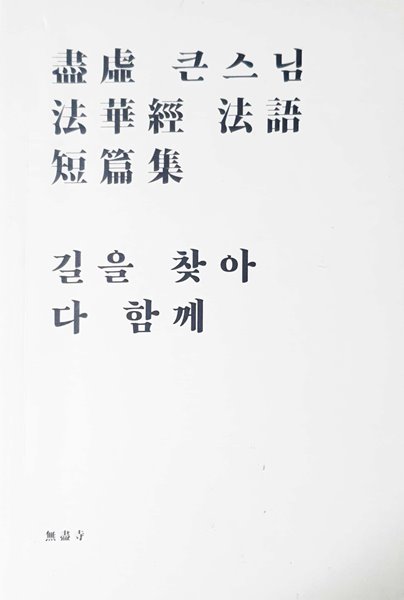 盡虛 큰스님
法華經 法語
短篇集
길을 찾아
다 함께
無盡寺